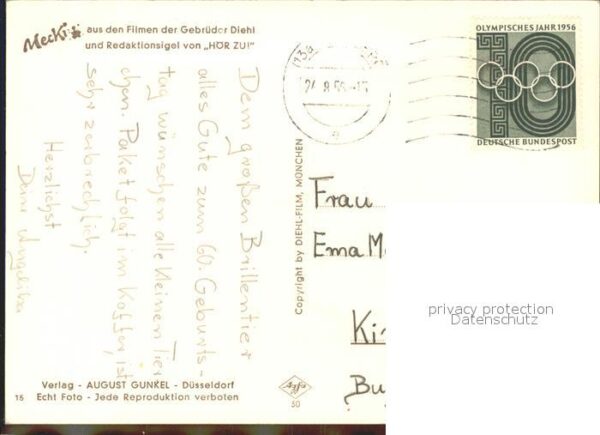 Mecki
aus den Filmen der Gebrüder Diehl
und Redaktionsigel von „HÖR ZU!"
Dem großen Brillentier
alles Gute zum 60. Geburts-
tag wünschen alle kleinen Tier
chen. Paket folgt im Koffer, ist
sehr zerbrechlich.
Herzlichst
Deine Angelika
Verlag - AUGUST GUNKEL - Düsseldorf
15 Echt Foto - Jede Reproduktion verboten
Copyright by DIEHL-FILM, MÜNCHEN
Agfa
50
OLYMPISCHES JAHR 1956
DEUTSCHE BUNDESPOST
Frau
Ema M
Ki
Bu
privacy protection
Datenschutz